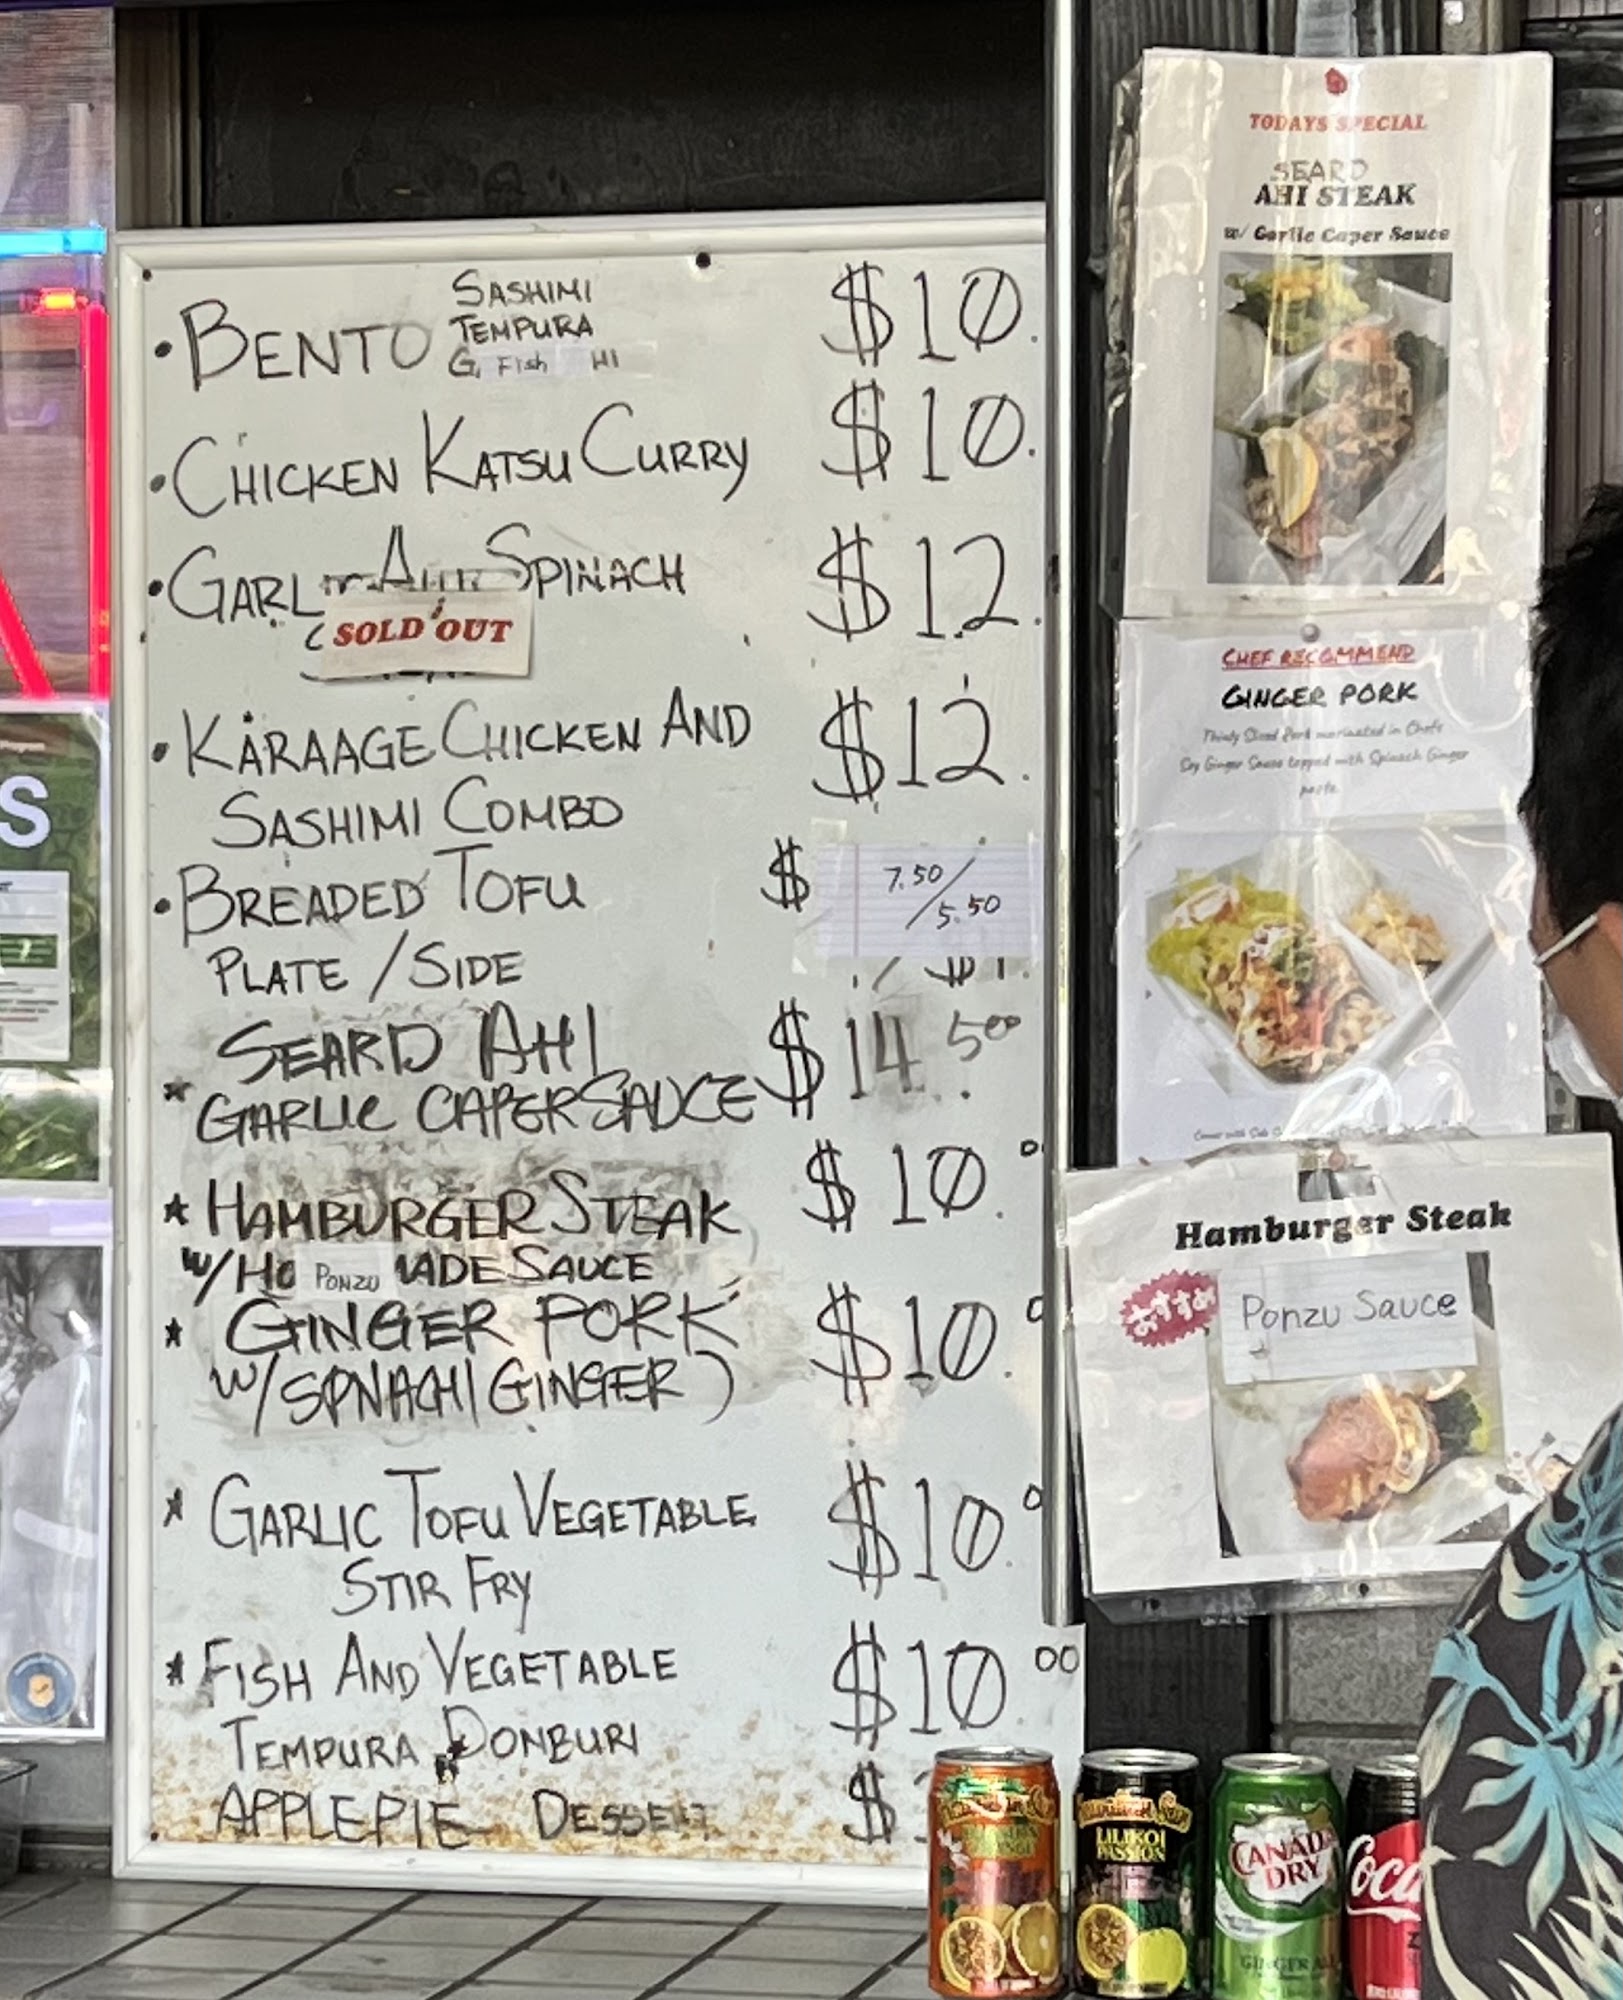 BENTO SASHIMI $10.
TEMPURA
G. Fish HI
CHICKEN KATSU CURRY $10.
GARL AHI SPINACH $12.
SOLD OUT
KARAAGE CHICKEN AND $12.
SASHIMI COMBO
BREADED TOFU $ 7.50/5.50
PLATE / SIDE
SEARD AHI $14 500
* GARLIC CAPER SAUCE
* HAMBURGER STEAK $10.
w/HO PONZU MADE SAUCE
* GINGER PORK $10.
W/SPNACH GINGER)
* GARLIC TOFU VEGETABLE $10.
STIR FRY
* FISH AND VEGETABLE $10.00
TEMPURA DONBURI
APPLE PIE DESSERT $
TODAYS SPECIAL
SEARD
AHI STEAK
w/ Garlic Caper Sauce
CHEF RECOMMEND
GINGER PORK
Thinly Sliced Pork marinated in Chefs
Soy Ginger Sauce topped with Spinach Ginger
paste
Hamburger Steak
おすすめ
Ponzu Sauce
S
LILIKOI
PASSION
CANADA
DRY
GINGER ALE
Coca